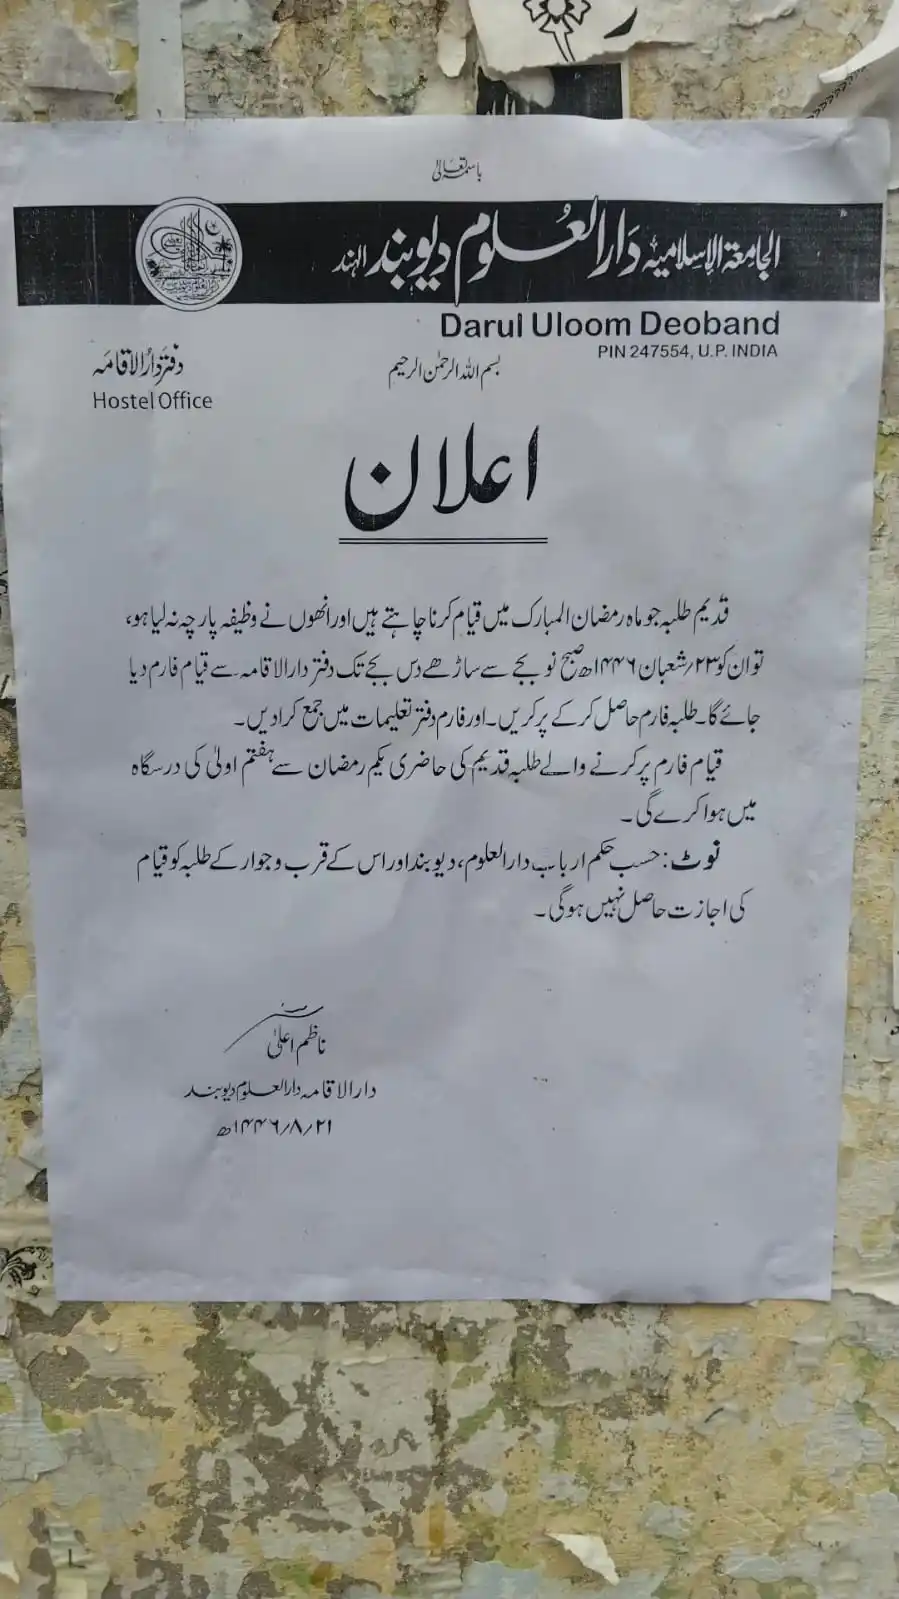 باسمہ تعالیٰ
الجامعۃ الاسلامیۃ دارالعلوم دیوبند الہند
Darul Uloom Deoband
PIN 247554, U.P. INDIA
دفتر دارالاقامہ
Hostel Office
بسم اللہ الرحمٰن الرحیم
اعلان
قدیم طلبہ جو ماہ رمضان المبارک میں قیام کرنا چاہتے ہیں اور انھوں نے وظیفہ پارچہ نہ لیا ہو،
تو ان کو ۲۳؍شعبان ۱۴۴۶ھ صبح نو بجے سے ساڑھے دس بجے تک دفتر دارالاقامہ سے قیام فارم دیا
جائے گا۔ طلبہ فارم حاصل کرکے پر کریں۔ اور فارم دفتر تعلیمات میں جمع کرادیں۔
قیام فارم پر کرنے والے طلبہ قدیم کی حاضری یکم رمضان سے ہفتم اولیٰ کی درسگاہ
میں ہوا کرے گی۔
نوٹ: حسب حکم ارباب دارالعلوم، دیوبند اور اس کے قرب و جوار کے طلبہ کو قیام
کی اجازت حاصل نہیں ہوگی۔
ناظم اعلیٰ
دارالاقامہ دارالعلوم دیوبند
۲۱؍۸؍۱۴۴۶ھ